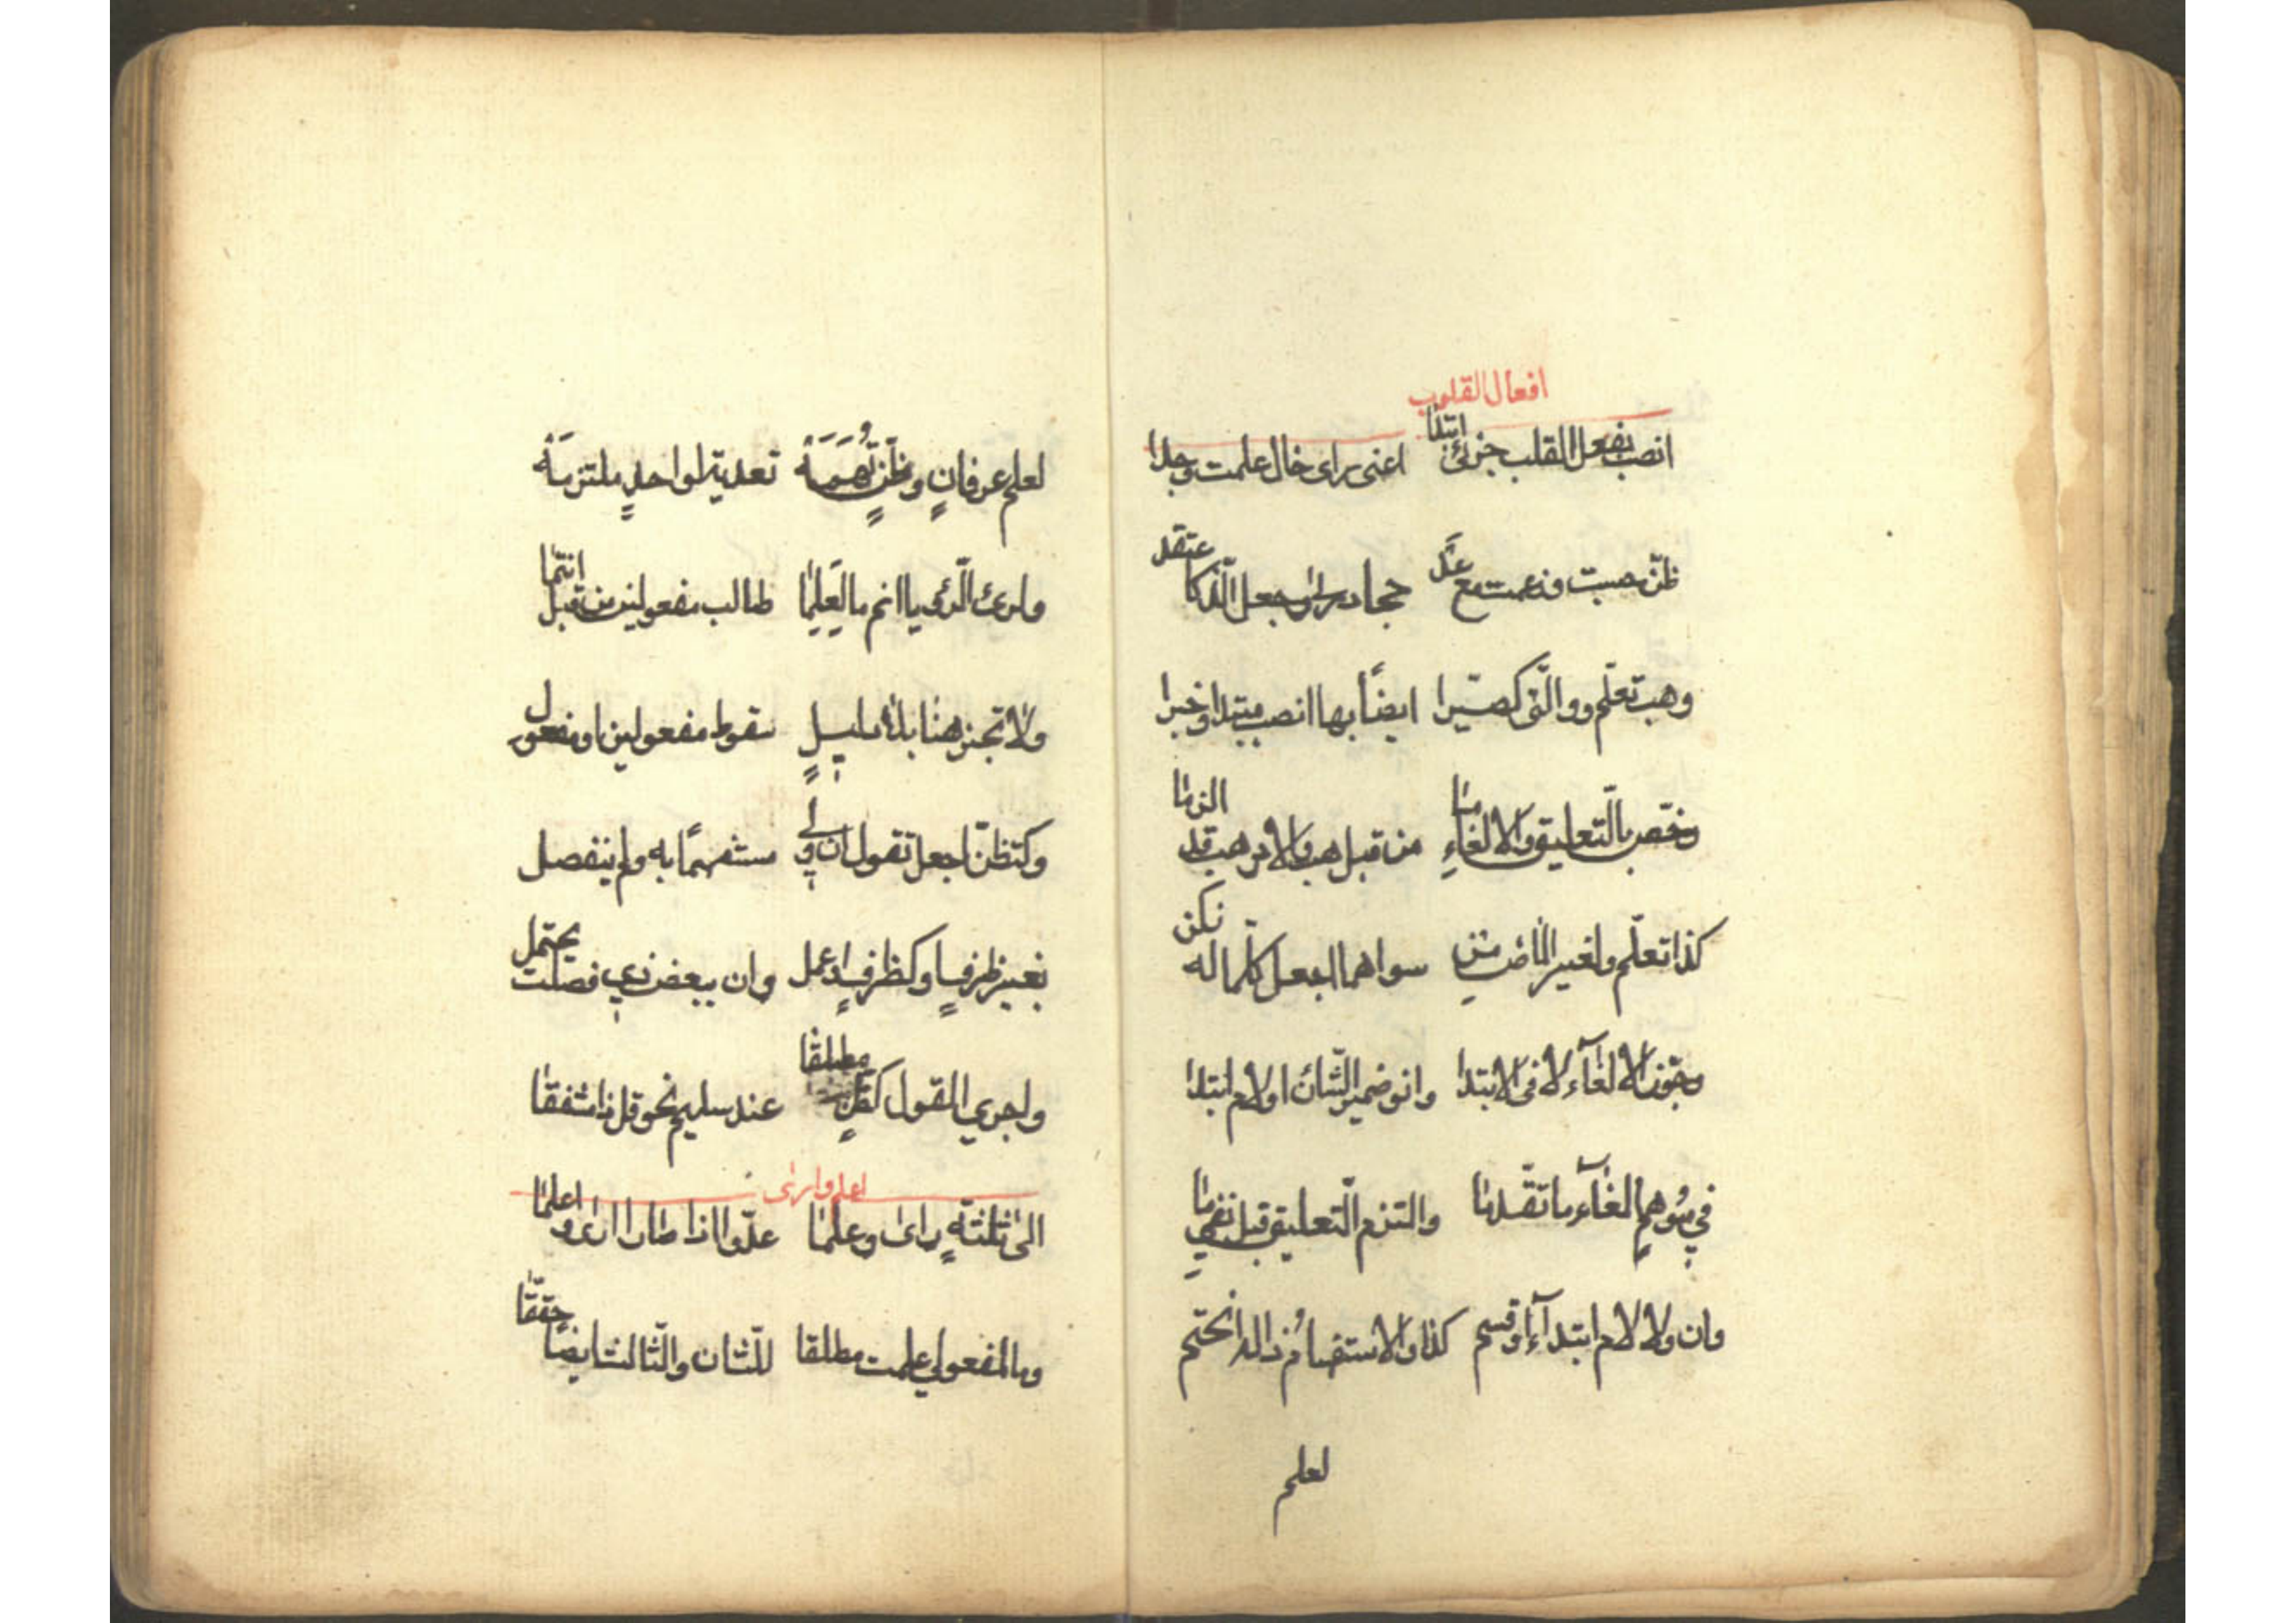 افعال القلوب
انصب بفعل القلب جزئى ابتدا اعنى راى خال علمت وجدا
ظنّ حسبت وزعمت مع عدّ حجا درى وجعل الّذ كاعتقد
وهب تعلّم والّتى كصيّرا ايضًا بها انصب مبتدا وخبرا
وخصّ بالّتعليق والالغاءِ ما من قبل هب والامر هب قد الزما
كذا تعلّم ولغير الماض من سواهما اجعل كلّما له زكن
وجوّز الالغآء لا فى الابتدا وانو ضمير الشّان او لام ابتدا
في موهم الغآء ما تقّدما والتزم الّتعليق قبل نفي ما
وان ولا لام ابتدآء او قسم كذا والاستفهامُ ذا له انحتم
لعلم
لعلم عرفانٍ وظنّ تُهَمَهْ تعدية لواحدٍ ملتزمَهْ
ولرئ الّرئى يا انم ما لعَلِما طالب مفعولين من قبل انتما
ولا تجز هنا بلا دليلٍ سقوط مفعولين او مفعول
وكتظنّ اجعل تقول ان ولي مستفهمًا به ولم ينفصل
بغير ظرفٍ او كظرفٍ او عمل وان ببعض ذي فصلت يحتمل
واجري القول كظنّ مطلقا عند سليم نحو قل ذا مشفقا
اعلم وارى
الى ثلثةٍ راى وعلما عدّوا اذا صارا ارى واعلما
وما لمفعولي علمت مطلقا للّثان والّثالث ايضًا حققّا